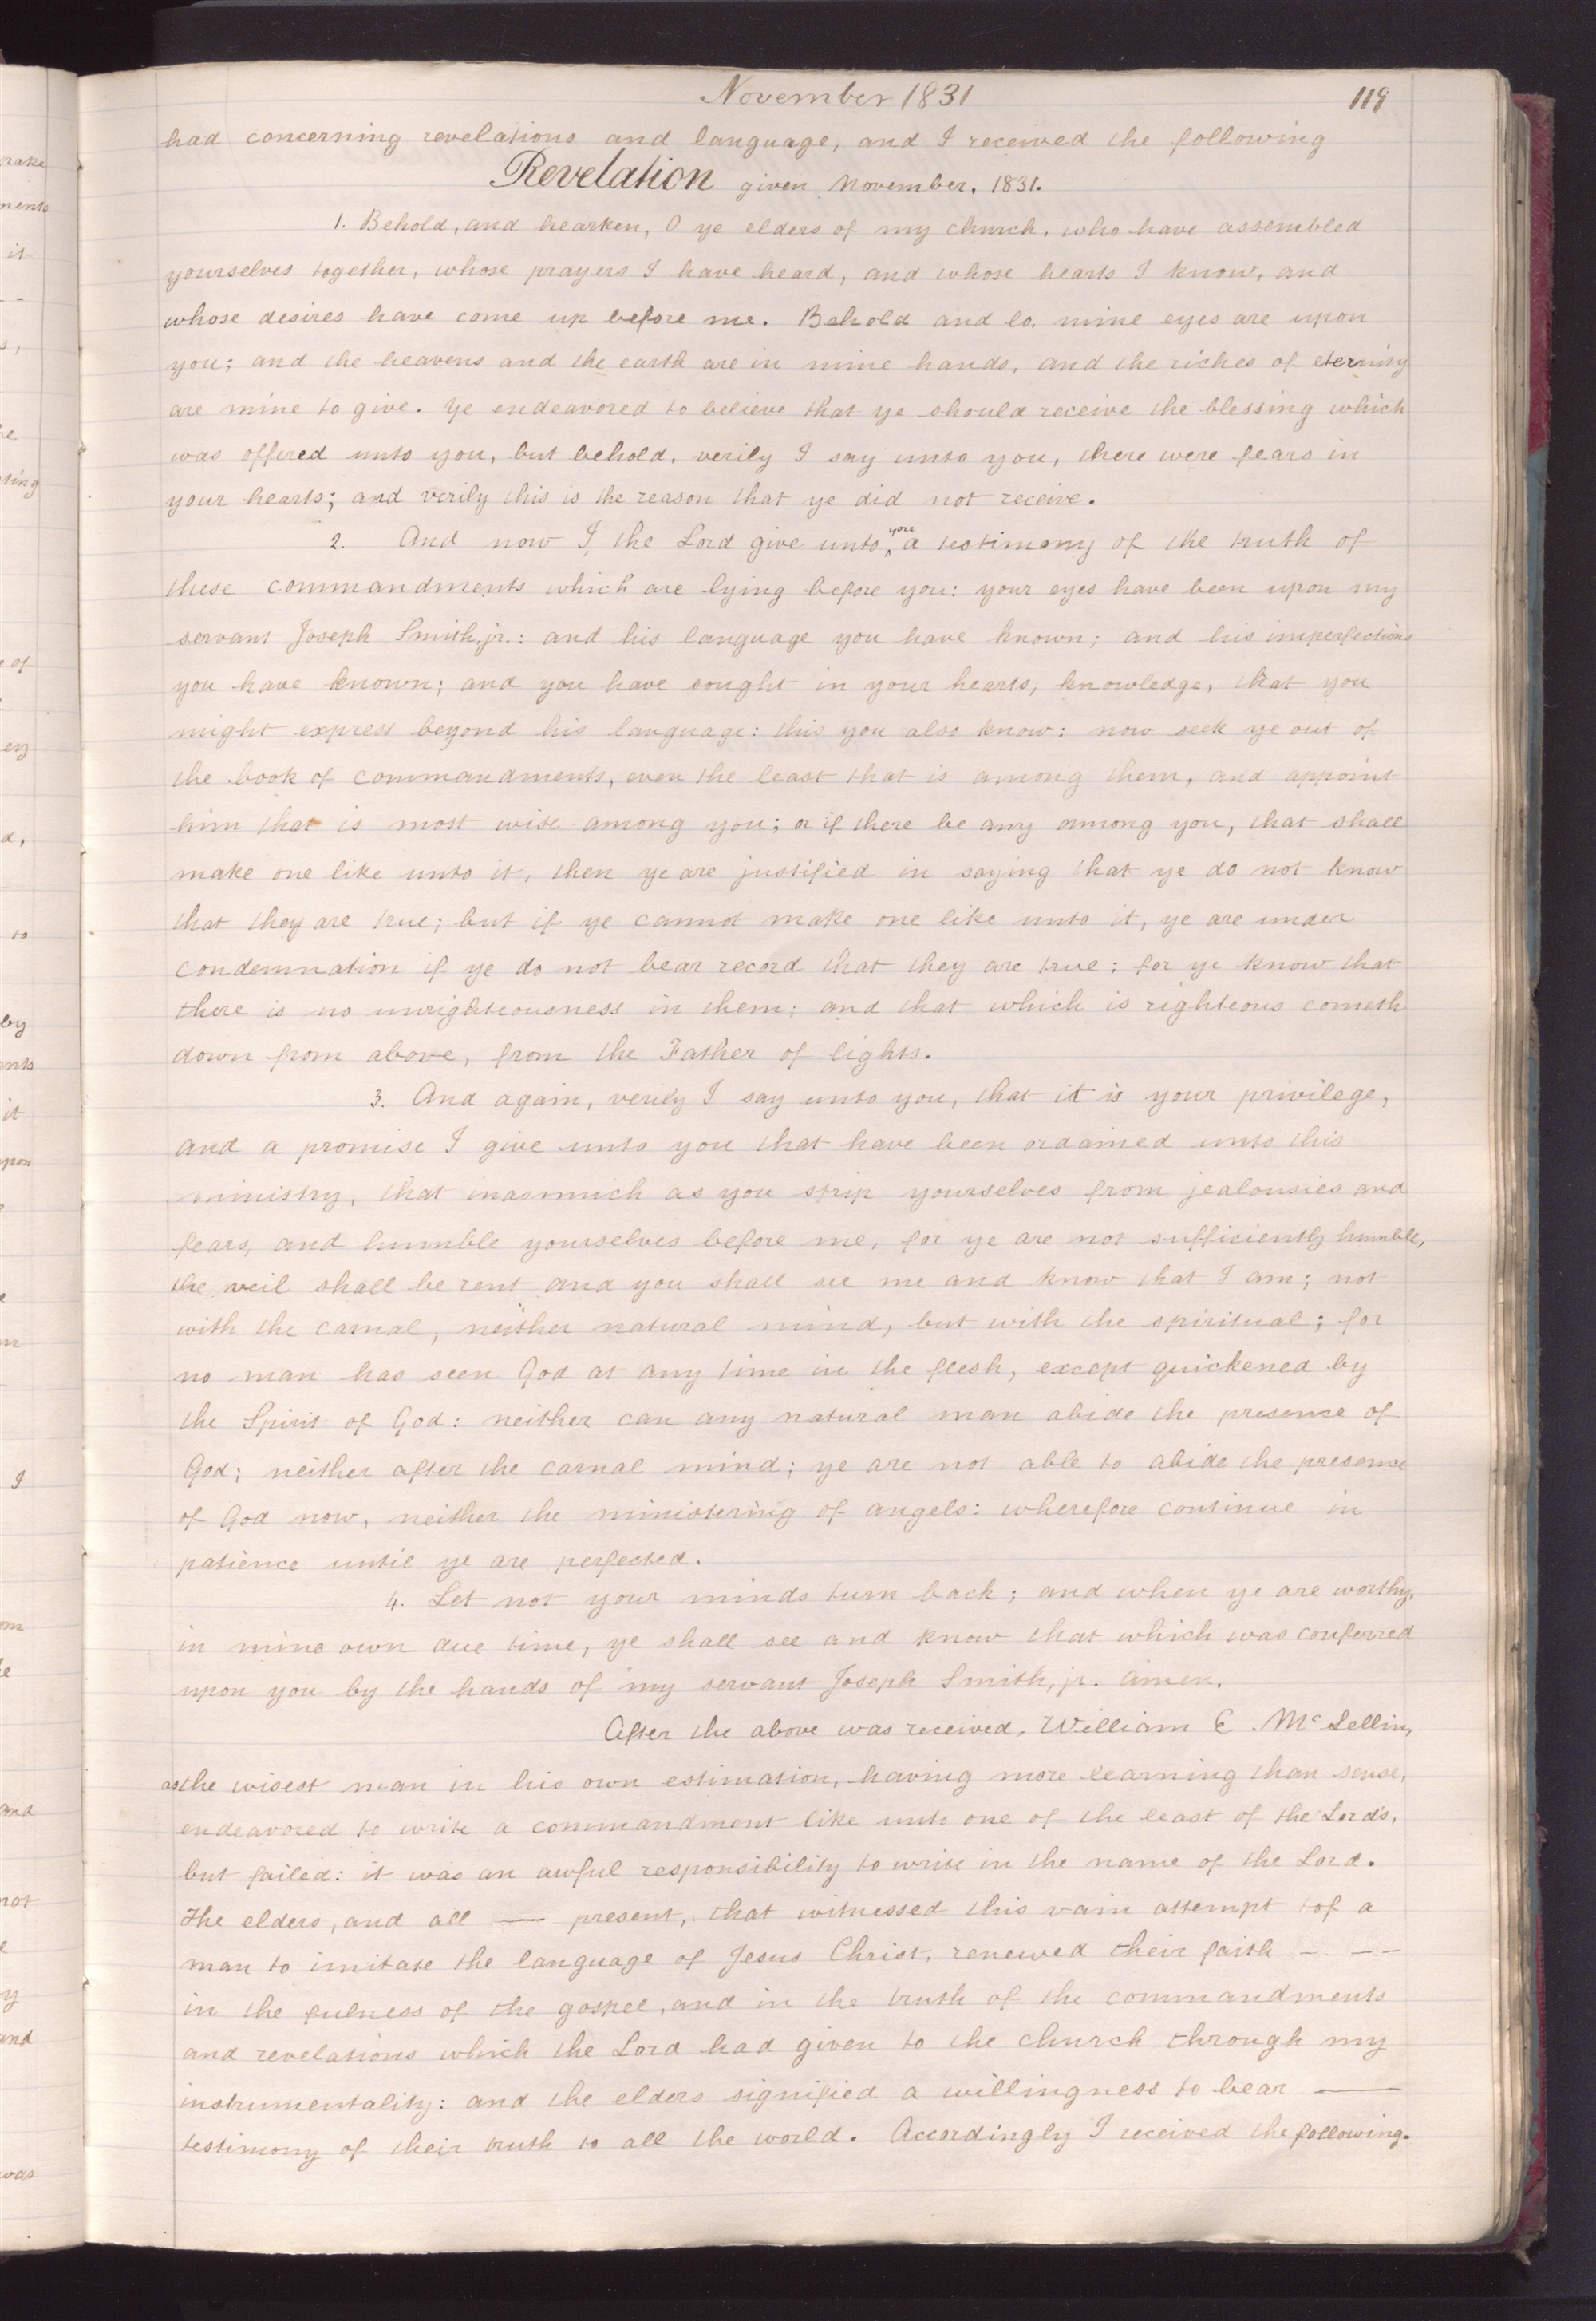 November 1831
119
had concerning revelations and language, and I received the following
Revelation given November, 1831.
1. Behold, and hearken, O ye elders of my church, who have assembled
yourselves together, whose prayers I have heard, and whose hearts I know, and
whose desires have come up before me. Behold and lo, mine eyes are upon
you; and the heavens and the earth are in mine hands, and the riches of eternity
are mine to give. Ye endeavored to believe that ye should receive the blessing which
was offered unto you, but behold, verily I say unto you, there were fears in
your hearts; and verily this is the reason that ye did not receive.
2. And now I, the Lord give unto you a testimony of the truth of
these commandments which are lying before you: your eyes have been upon my
servant Joseph Smith, jr.: and his language you have known; and his imperfections
you have known; and you have sought in your hearts, knowledge, that you
might express beyond his language: this you also know: now seek ye out of
the book of commandments, even the least that is among them, and appoint
him that is most wise among you; or if there be any among you, that shall
make one like unto it, then ye are justified in saying that ye do not know
that they are true; but if ye cannot make one like unto it, ye are under
condemnation if ye do not bear record that they are true: for ye know that
there is no unrighteousness in them; and that which is righteous cometh
down from above, from the Father of lights.
3. And again, verily I say unto you, that it is your privilege,
and a promise I give unto you that have been ordained unto this
ministry, that inasmuch as you strip yourselves from jealousies and
fears, and humble yourselves before me, for ye are not sufficiently humble,
the veil shall be rent and you shall see me and know that I am; not
with the carnal, neither natural mind, but with the spiritual; for
no man has seen God at any time in the flesh, except quickened by
the Spirit of God: neither can any natural man abide the presence of
God; neither after the carnal mind; ye are not able to abide the presence
of God now, neither the ministering of angels: wherefore continue in
patience until ye are perfected.
4. Let not your minds turn back; and when ye are worthy,
in mine own due time, ye shall see and know that which was conferred
upon you by the hands of my servant Joseph Smith, jr. Amen.
After the above was received, William E. McLellin,
as the wisest man in his own estimation, having more learning than sense,
endeavored to write a commandment like unto one of the least of the Lord's,
but failed: it was an awful responsibility to write in the name of the Lord.
The elders, and all — present, that witnessed this vain attempt of a
man to imitate the language of Jesus Christ, renewed their faith — — —
in the fulness of the gospel, and in the truth of the commandments
and revelations which the Lord had given to the church through my
instrumentality: and the elders signified a willingness to bear —
testimony of their truth to all the world. Accordingly I received the following.